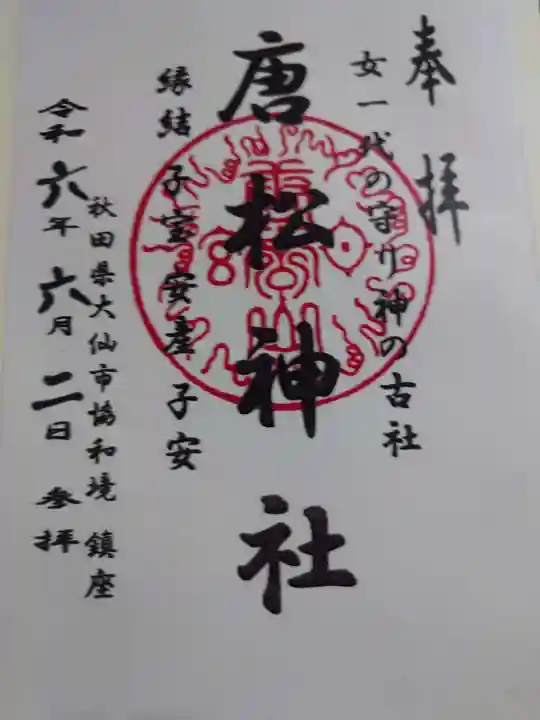 奉拝
女一代の守り神の古社
唐松神社
縁結 子宝安産 子安
秋田県大仙市協和境 鎮座
令和六年六月二日 参拝